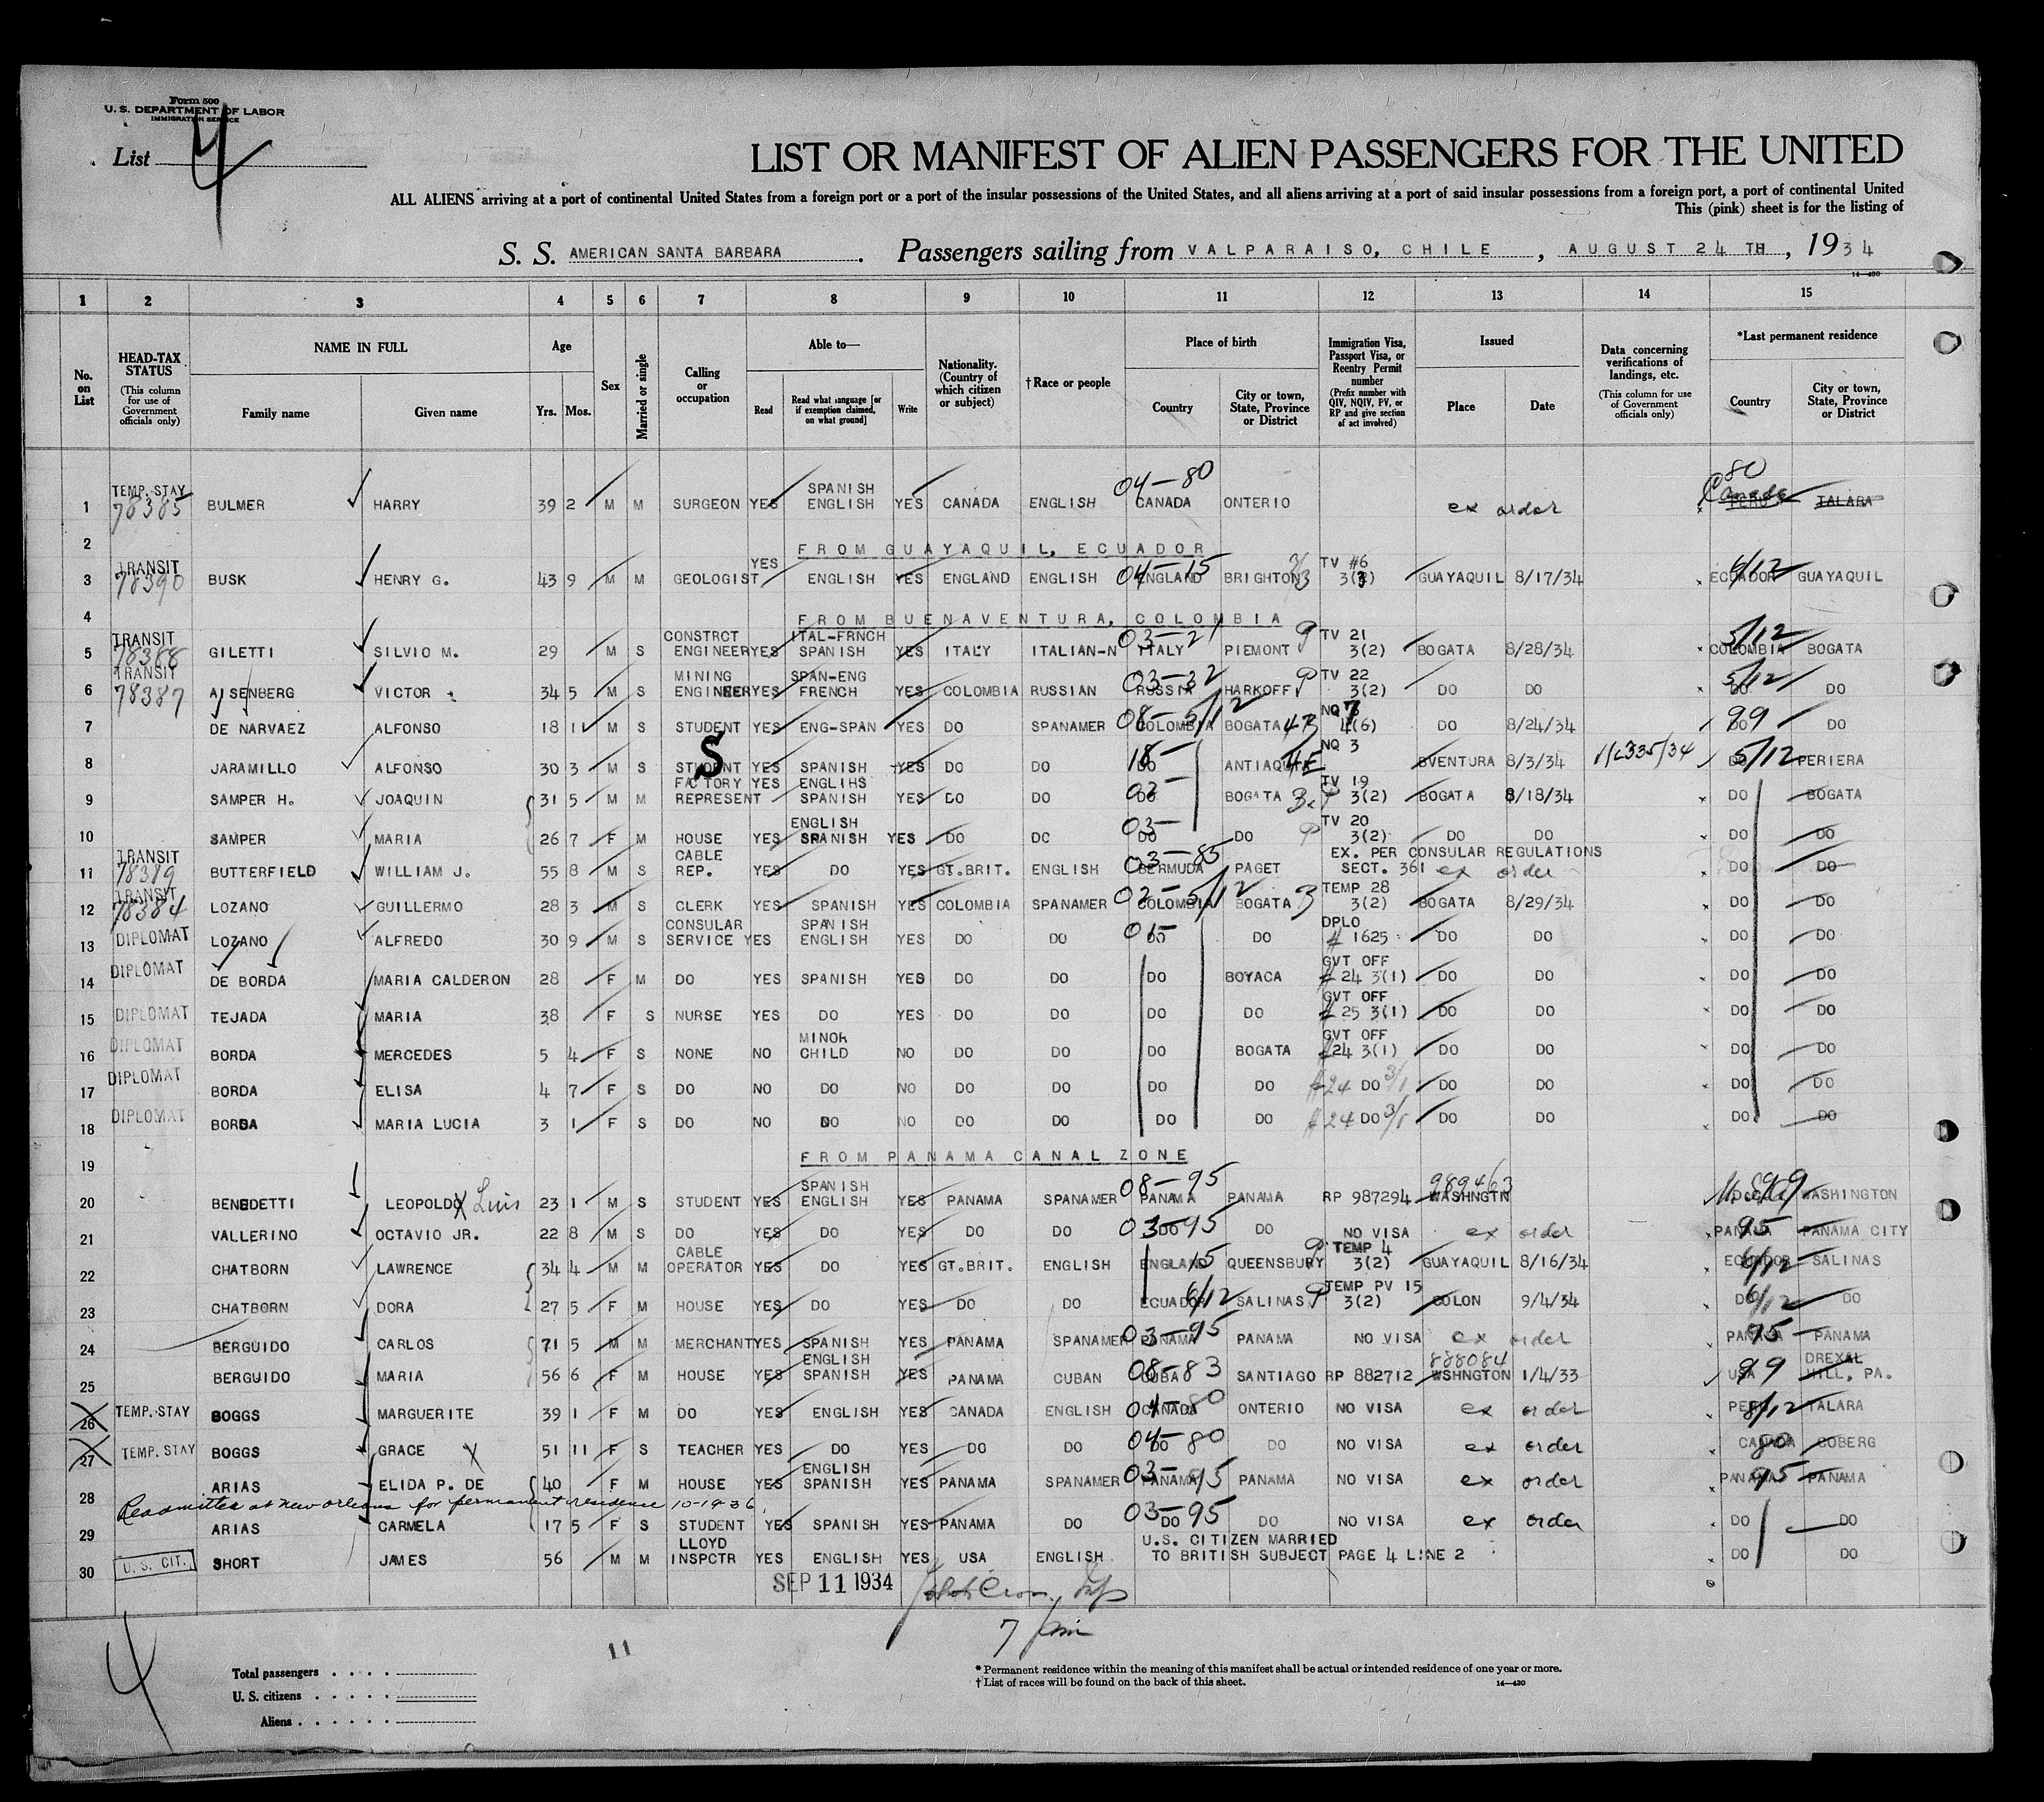 Form 500
U. S. DEPARTMENT OF LABOR
IMMIGRATION SERVICE
List 4
LIST OR MANIFEST OF ALIEN PASSENGERS FOR THE UNITED
ALL ALIENS arriving at a port of continental United States from a foreign port or a port of the insular possessions of the United States, and all aliens arriving at a port of said insular possessions from a foreign port, a port of continental United
This (pink) sheet is for the listing of
S. S. AMERICAN SANTA BARBARA. Passengers sailing from VALPARAISO, CHILE, AUGUST 24 TH, 1934
14—430
1 2 3 4 5 6 7 8 9 10 11 12 13 14 15
No. on List
HEAD-TAX STATUS (This column for use of Government officials only)
NAME IN FULL Family name Given name
Age Yrs. Mos.
Sex
Married or single
Calling or occupation
Able to— Read Read what language [or if exemption claimed, on what ground] Write
Nationality. (Country of which citizen or subject)
†Race or people
Place of birth Country City or town, State, Province or District
Immigration Visa, Passport Visa, or Reentry Permit number (Prefix number with QIV, NQIV, PV, or RP and give section of act involved)
Issued Place Date
Data concerning verifications of landings, etc. (This column for use of Government officials only)
*Last permanent residence Country City or town, State, Province or District
1 TEMP. STAY 78385 BULMER HARRY 39 2 M M SURGEON YES SPANISH ENGLISH YES CANADA ENGLISH 04-80 CANADA ONTERIO ex order 80 Canada PERU TALARA
2 FROM GUAYAQUIL, ECUADOR
3 TRANSIT 78390 BUSK HENRY G. 43 9 M M GEOLOGIST YES ENGLISH YES ENGLAND ENGLISH 04-15 ENGLAND BRIGHTON TV #6 GUAYAQUIL 8/17/34 6/12 ECUADOR GUAYAQUIL
4 FROM BUENAVENTURA, COLOMBIA
5 TRANSIT 78388 GILETTI SILVIO M. 29 M S CONSTRCT ENGINEER YES ITAL-FRNCH SPANISH YES ITALY ITALIAN-N 03-21 ITALY PIEMONT TV 21 3(2) BOGATA 8/28/34 5/12 COLOMBIA BOGATA
6 TRANSIT 78387 AISENBERG VICTOR 34 5 M S MINING ENGINEER YES SPAN-ENG FRENCH YES COLOMBIA RUSSIAN 03-32 RUSSIA HARKOFF TV 22 3(2) DO DO 5/12 DO DO
7 DE NARVAEZ ALFONSO 18 11 M S STUDENT YES ENG-SPAN YES DO SPANAMER 08-5/12 COLOMBIA BOGATA NQ 7 4(6) DO 8/24/34 99 DO DO
8 JARAMILLO ALFONSO 30 3 M S STUDENT S YES SPANISH YES DO DO 18- DO ANTIAQUIA 4E NQ 3 BVENTURA 8/3/34 5/12 DO PERIERA
9 SAMPER H. JOAQUIN 31 5 M M FACTORY REPRESENT YES ENGLIHS SPANISH YES DO DO 03- DO BOGATA TV 19 3(2) BOGATA 8/18/34 DO BOGATA
10 SAMPER MARIA 26 7 F M HOUSE YES ENGLISH SPANISH YES DO DO 03- DO DO TV 20 3(2) DO DO DO DO
11 TRANSIT 78389 BUTTERFIELD WILLIAM J. 55 8 M S CABLE REP. YES DO YES GT.BRIT. ENGLISH 03-85 BERMUDA PAGET EX. PER CONSULAR REGULATIONS SECT. 361 ex order DO DO
12 TRANSIT 78384 LOZANO GUILLERMO 28 3 M S CLERK YES SPANISH YES COLOMBIA SPANAMER 03-5/12 COLOMBIA BOGATA TEMP 28 3(2) BOGATA 8/29/34 DO DO
13 DIPLOMAT LOZANO ALFREDO 30 9 M S CONSULAR SERVICE YES SPANISH ENGLISH YES DO DO 01- DO DO DPLO # 1625 DO DO DO DO
14 DIPLOMAT DE BORDA MARIA CALDERON 28 F M DO YES SPANISH YES DO DO DO BOYACA GVT OFF # 24 3(1) DO DO DO DO
15 DIPLOMAT TEJADA MARIA 38 F S NURSE YES DO YES DO DO DO DO GVT OFF # 25 3(1) DO DO DO DO
16 DIPLOMAT BORDA MERCEDES 5 4 F S NONE NO MINOR CHILD NO DO DO DO BOGATA GVT OFF #24 3(1) DO DO DO DO
17 DIPLOMAT BORDA ELISA 4 7 F S DO NO DO NO DO DO DO DO #24 DO 3/1 DO DO DO DO
18 DIPLOMAT BORDA MARIA LUCIA 3 1 F S DO NO DO NO DO DO DO DO #24 DO 3/1 DO DO DO DO
19 FROM PANAMA CANAL ZONE
20 BENEDETTI LEOPOLDO Luis 23 1 M S STUDENT YES SPANISH ENGLISH YES PANAMA SPANAMER 08-95 PANAMA PANAMA RP 987294 989463 WASHNGTN 99 WASHINGTON
21 VALLERINO OCTAVIO JR. 22 8 M S DO YES DO YES DO DO 03-95 DO DO NO VISA ex order 95 PANAMA PANAMA CITY
22 CHATBORN LAWRENCE 34 4 M M CABLE OPERATOR YES DO YES GT.BRIT. ENGLISH 15 ENGLAND QUEENSBURY TEMP 4 3(2) GUAYAQUIL 8/16/34 6/12 ECUADOR SALINAS
23 CHATBORN DORA 27 5 F M HOUSE YES DO YES DO DO 6/12 ECUADOR SALINAS TEMP PV 15 3(2) COLON 9/4/34 6/12 DO DO
24 BERGUIDO CARLOS 71 5 M M MERCHANT YES SPANISH YES PANAMA SPANAMER 03-95 PANAMA PANAMA NO VISA ex order 95 PANAMA PANAMA
25 BERGUIDO MARIA 56 6 F M HOUSE YES ENGLISH SPANISH YES PANAMA CUBAN 08-83 CUBA SANTIAGO RP 882712 888084 WSHNGTON 1/4/33 99 USA DREXAL HILL, PA.
26 TEMP. STAY BOGGS MARGUERITE 39 1 F M DO YES ENGLISH YES CANADA ENGLISH 04-80 CANADA ONTERIO NO VISA ex order 8/12 PERU TALARA
27 TEMP. STAY BOGGS GRACE 51 11 F S TEACHER YES DO YES DO DO 04-80 DO DO NO VISA ex order 80 CANADA COBERG
28 ARIAS ELIDA P. DE 40 F M HOUSE YES ENGLISH SPANISH YES PANAMA SPANAMER 03-95 PANAMA PANAMA NO VISA ex order 95 PANAMA PANAMA
Readmitted at New Orleans for permanent residence 10-19-36
29 ARIAS CARMELA 17 5 F S STUDENT YES SPANISH YES PANAMA DO 03-95 DO DO NO VISA ex order DO DO
30 U. S. CIT. SHORT JAMES 56 M M LLOYD INSPCTR YES ENGLISH YES USA ENGLISH U.S. CITIZEN MARRIED TO BRITISH SUBJECT PAGE 4 LINE 2 DO DO
SEP 11 1934
11
4
Total passengers
U. S. citizens
Aliens
* Permanent residence within the meaning of this manifest shall be actual or intended residence of one year or more.
† List of races will be found on the back of this sheet.
14—430